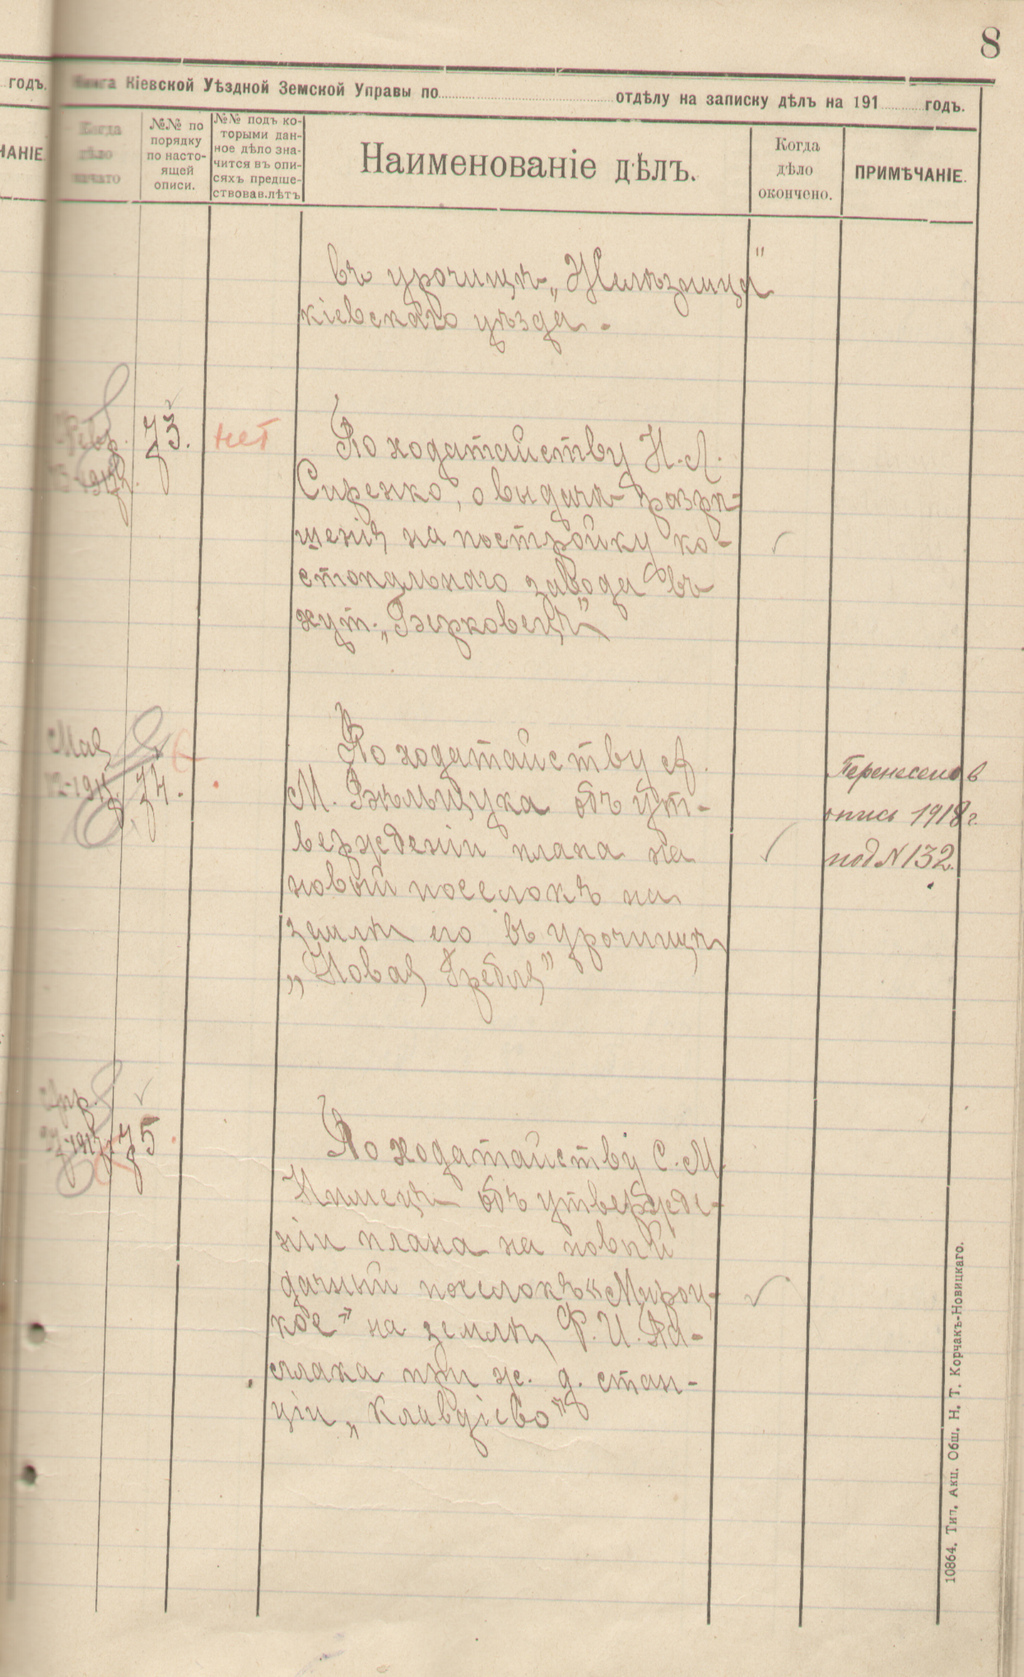 8
годъ.
Книга Кіевской Уѣздной Земской Управы по отдѣлу на записку дѣлъ на 191 годъ.
ЧАНІЕ
Когда
дѣло
начато
№№ по
порядку
по насто-
ящей
описи.
№№ подъ ко-
торыми дан-
ное дѣло зна-
чится въ опи-
сяхъ предше-
ствовав.лѣтъ
Наименованіе дѣлъ.
Когда
дѣло
окончено.
ПРИМѢЧАНІЕ.
въ урочищѣ „Желѣзница"
кіевскаго уѣзда.
Февр.
73.
нет
По ходатайству Н. Л.
Сиренко, о выдачѣ разрѣ-
шенія на постройку ко-
стопальнаго завода въ
хут. „Берковецъ"
Мая
74.
По ходатайству А.
М. Бѣльщука объ ут-
вержденіи плана на
новый поселокъ на
землѣ его въ урочищѣ
„Новая Гребля"
Перенесено в
опись 1918 г.
под N 132.
Апр.
75
По ходатайству С. М.
Нимецъ объ утвержде-
ніи плана на новый
дачный поселокъ «Мироц-
кое» на землѣ Ф. И. Па-
сплака при ж. д. стан-
ціи „Клавдіево"
10864. Тип. Акц. Общ. Н. Т. Корчакъ-Новицкаго.